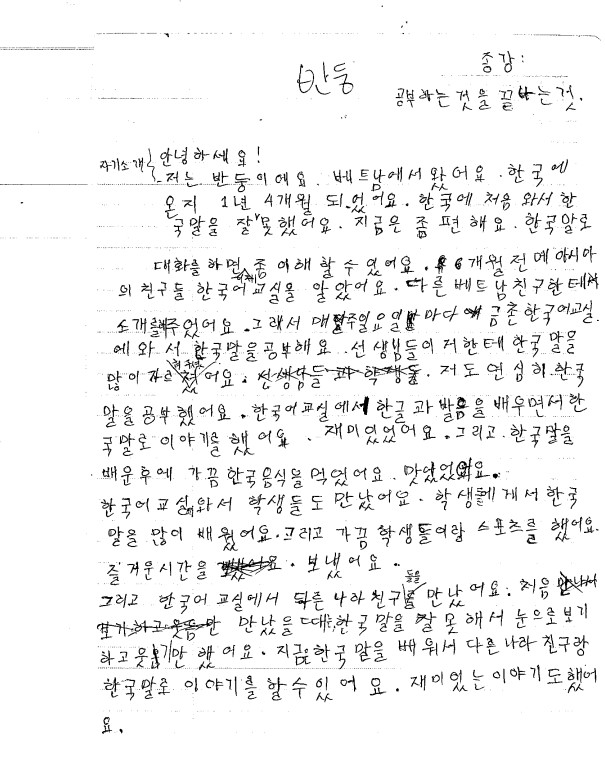 반둥
종강:
공부하는 것을 끝나는 것.
자기소개 안녕하세요!
저는 반둥이에요. 베트남에서 왔어요. 한국에
온지 1년 4개월 되었어요. 한국에 처음 와서 한
국말을 잘 못했어요. 지금은 좀 편해요. 한국말로
대화를 하면 좀 이해 할 수 있어요. 6개월 전에 아시아
의 친구들 한국어교실을 알았어요. 다른 베트남친구한테서
소개해주었어요. 그래서 매주일요일 마다 금촌한국어교실
에 와서 한국말을공부해요. 선생님들이 저한테 한국말을
많이 가르쳤어요. 저도 열심히 한국
말을 공부했어요. 한국어교실에서 한글과 발음을 배우면서 한
국말로 이야기를 했어요. 재미있었어요. 그리고 한국말을
배운후에 가끔 한국음식을 먹었어요. 맛있었어요.
한국어교실에 와서 학생들도 만났어요. 학생들에게서 한국
말을 많이 배웠어요. 그리고 가끔 학생들이랑 스포츠를 했어요.
즐거운시간을 보냈어요.
그리고 한국어 교실에서 다른 나라 친구들을 만났어요. 처음
만났을 때는 한국말을 잘 못해서 눈으로 보기
하고 웃기만 했어요. 지금은 한국말을 배워서 다른 나라 친구랑
한국말로 이야기를 할 수 있어요. 재미있는 이야기도 했어
요.